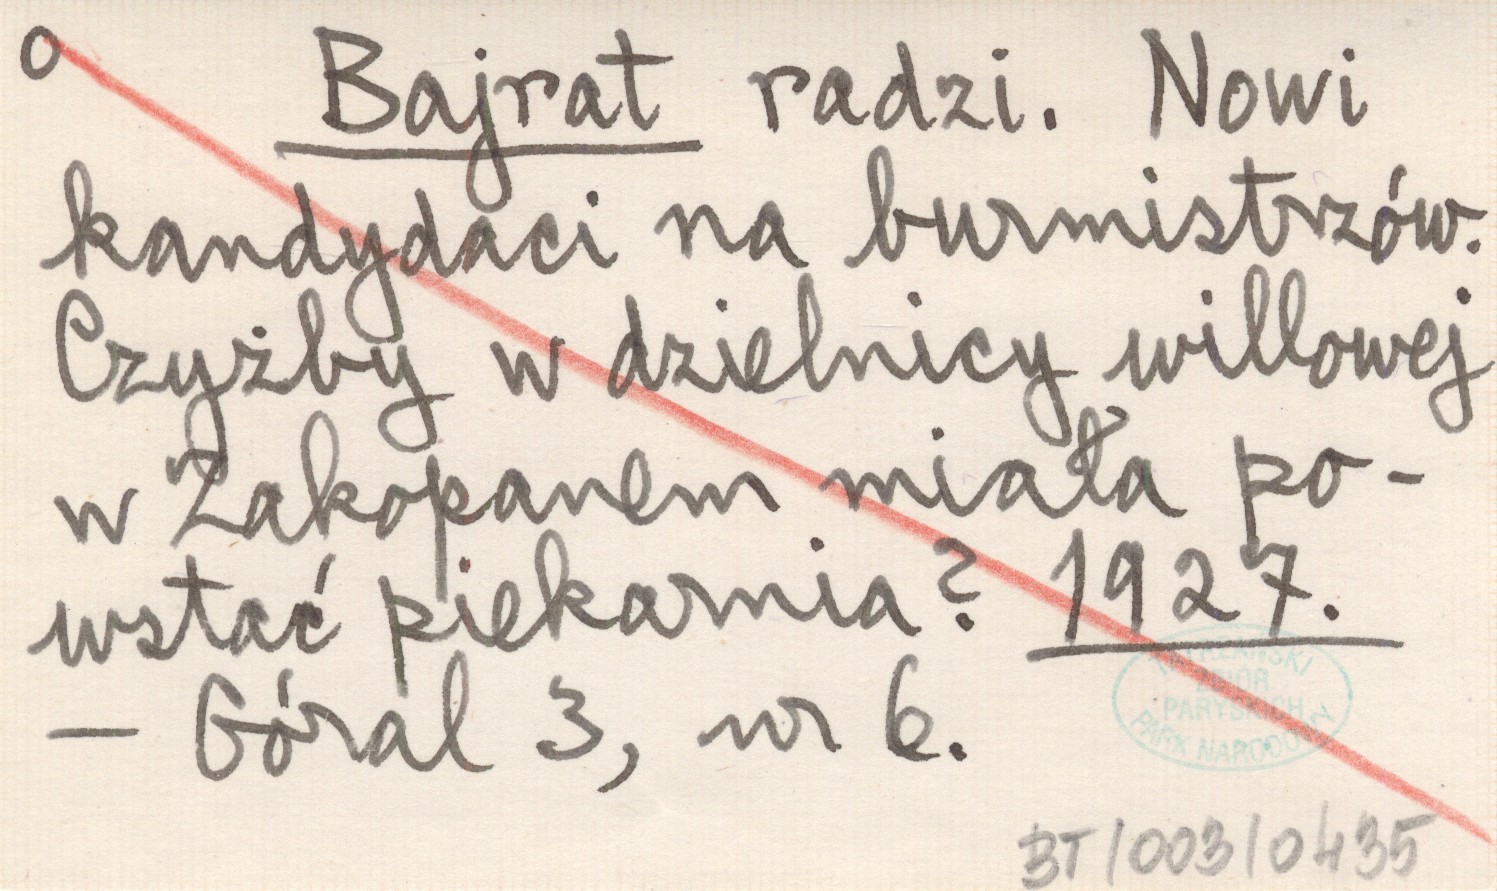 o Bajrat radzi. Nowi
kandydaci na burmistrzów.
Czyżby w dzielnicy willowej
w Zakopanem miała po-
wstać piekarnia? 1927.
— Góral 3, nr 6.
TATRZAŃSKI
ZBIÓR
PARYSKICH
PARK NARODOWY
BT/003/0435